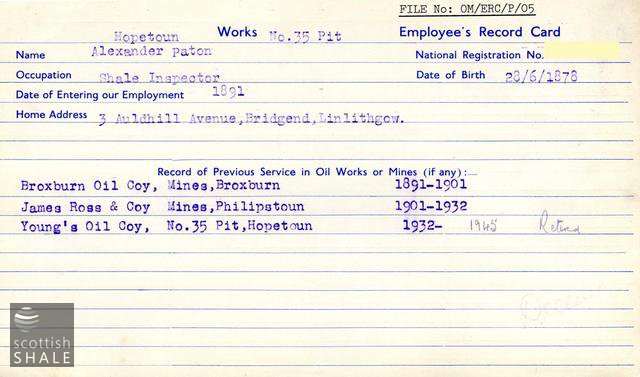 FILE No: OM/ERC/P/05
Hopetoun Works No.35 Pit Employee's Record Card
Name Alexander paton National Registration No.
Occupation Shale Inspector Date of Birth 28/6/1878
Date of Entering our Employment 1891
Home Address 3 Auldhill Avenue,Bridgend,Linlithgow.
Record of Previous Service in Oil Works or Mines (if any):—
Broxburn Oil Coy, Mines,Broxburn 1891-1901
James Ross & Coy Mines,Philipstoun 1901-1932
Young's Oil Coy, No.35 Pit,Hopetoun 1932- 1945 Retired
scottish
SHALE